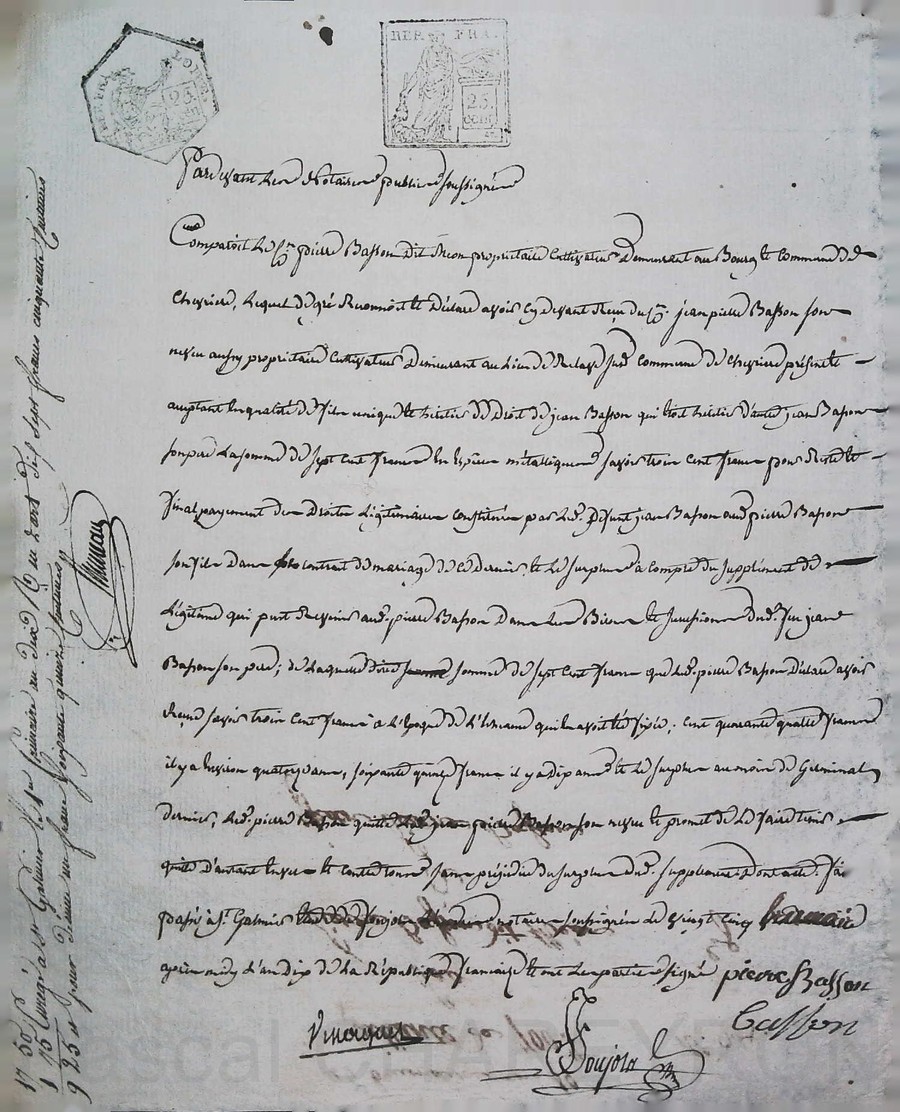 REP. FRA.
25
CEN.
REP. FRA.
25.
CEN.
Pardevant Les Notaires publics soussignés
Comparoit Le Cen. pierre Basson dit Neon proprietaire Cultivateur Demeurant au Bourg et Commune de
Chevrieres, Lequel de gré Reconnoit et Déclare avoir Cy devant Reçu du Cen. jean pierre Basson son
neveu aussy proprietaire Cultivateur Demeurant au Lieu de susd. Commune de Chevrieres présent et
acceptant En qualité de fils unique et héritier de Droit de jean Basson qui Etoit héritier d'autre jean Basson
son pere La somme de Sept Cent francs En Espèces métalliques savoir trois Cent francs pour Reste et
final payement des Droits Légitimaires Constitués par Led. Défunt jean Basson aud. pierre Basson
son fils Dans son Contrat de mariage de ce Dernier, et Le Surplus à Compte du Supplément de
Légitime qui peut Revenir aud. pierre Basson Dans Les Biens et Successions dud. feu jean
Basson son pere; de Laquelle dite somme de Sept Cent francs que Led. pierre Basson Déclare avoir
Reçue savoir trois Cent francs à L'Epoque de L'Echéance qui En avoit été fixée, Cent quarante quatre francs
il y a Environ quatorze ans, soixante quinze francs il y a Dix ans et Le surplus au mois de Germinal
dernier, Led. pierre Basson quitte Led. jean pierre Basson son neveu et promet de Le faire tenir
quitte D'autant Envers et Contre tous, sans préjudice du surplus dud. supplément Dont acte. fait
passé à St. Galmier notaires soussignés Le Vingt Cinq
après midy L'an Dix de La République française et ont Les parties signé pierre Basson
Basson
Soujola
Enreg. à St. Galmier Le frimaire an dix Ro. Rd. dix sept francs cinquante centimes
pour dixième un franc soixante quinze centimes
17 50
1 75